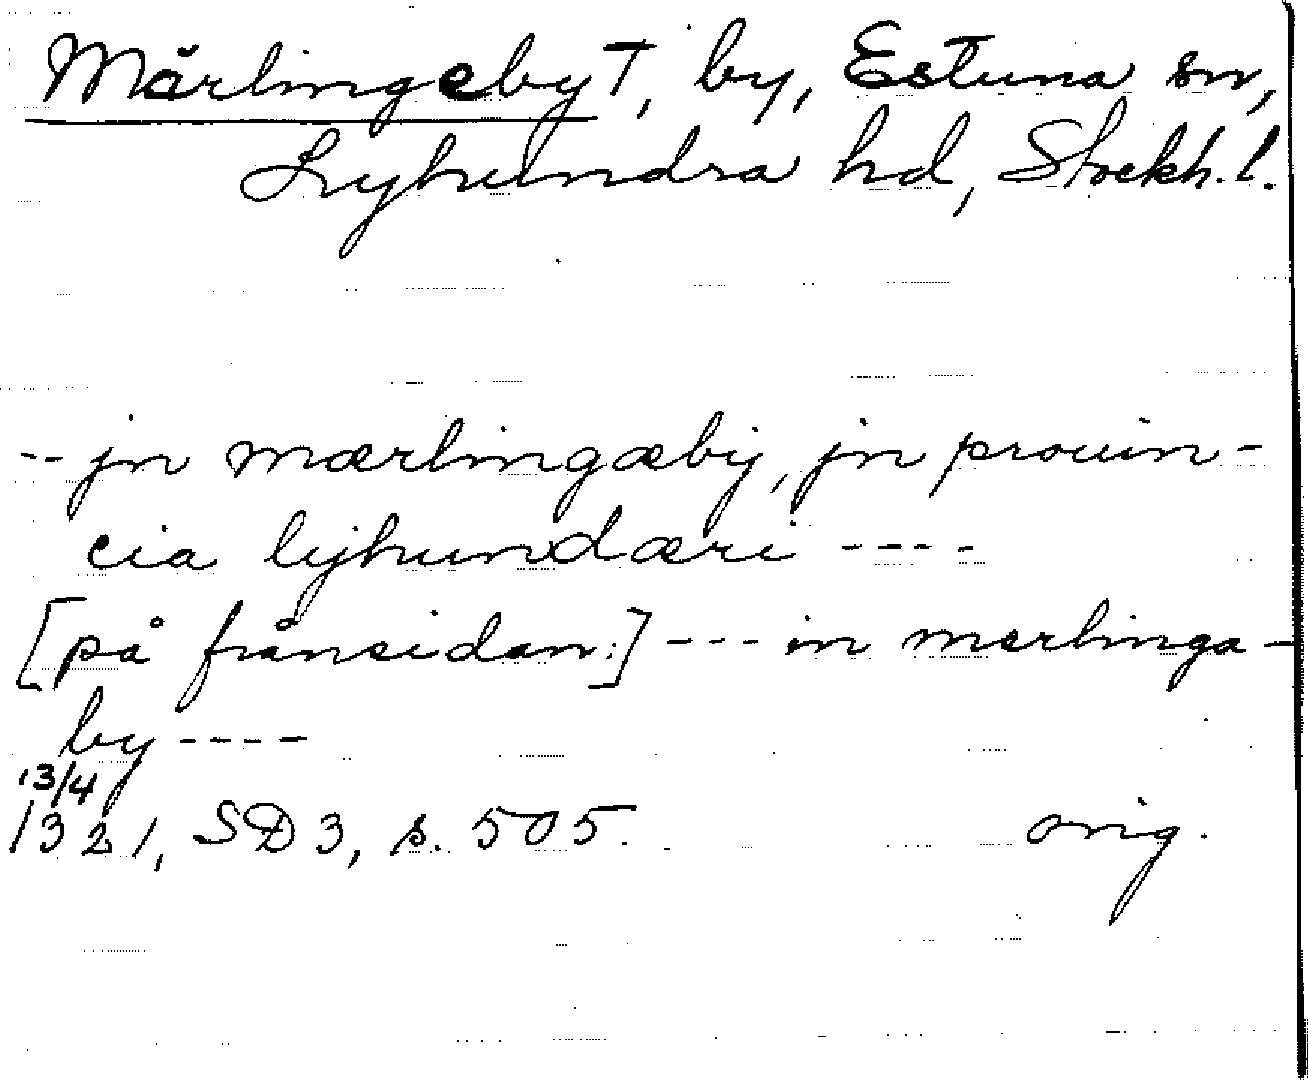 Märlingeby†, by, Estuna sn,
Lyhundra hd, Stockh. l.
-- jn mærlingæbij, jn prouin-
cia lijhundæri ----
[på frånsidan:] --- in merlinga-
by ----
13/4
1321, SD 3, s. 505. orig.